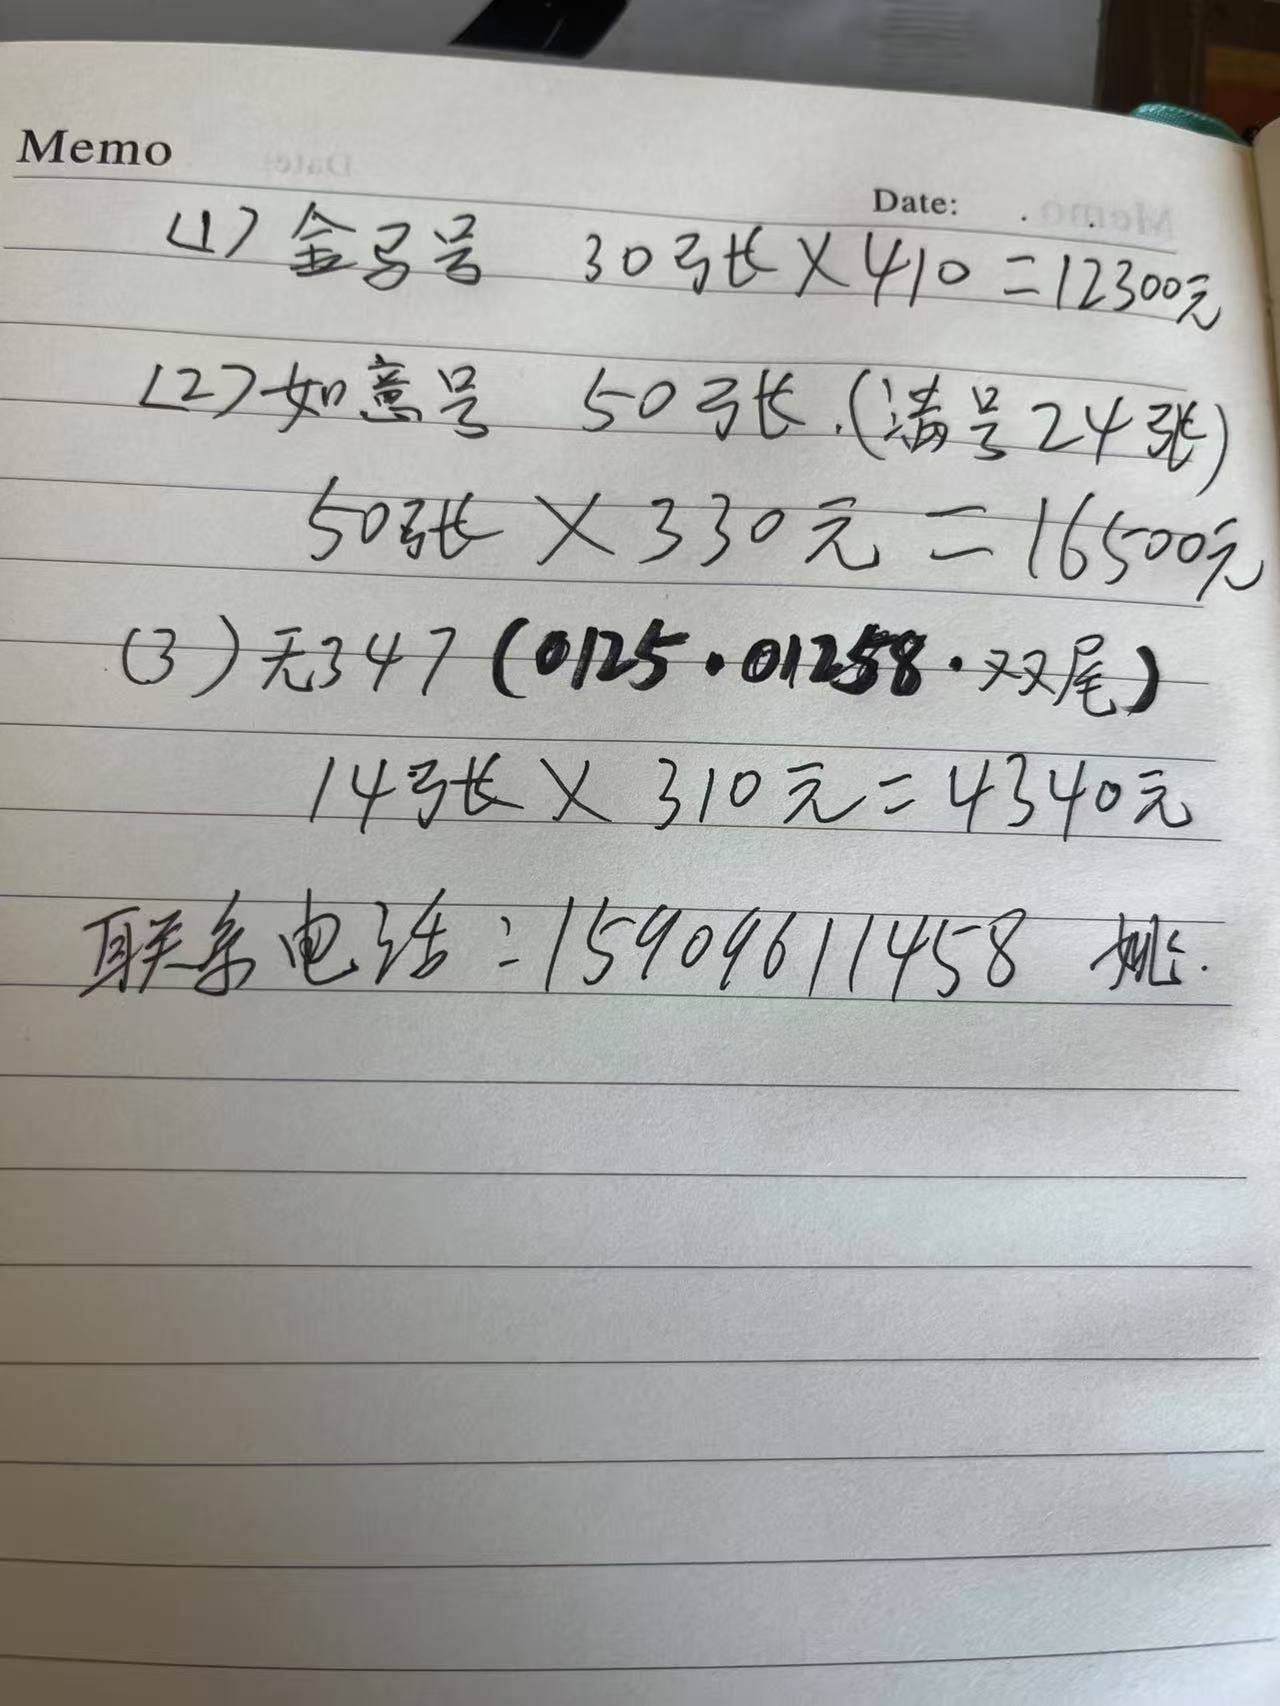 Memo
Date:
(1) 金马号 30张×410=12300元
(2) 如意号 50张.(满号24张)
50张×330元=16500元
(3) 无347(0125·01258·双尾)
14张×310元=4340元
联系电话:15909611458 姚.